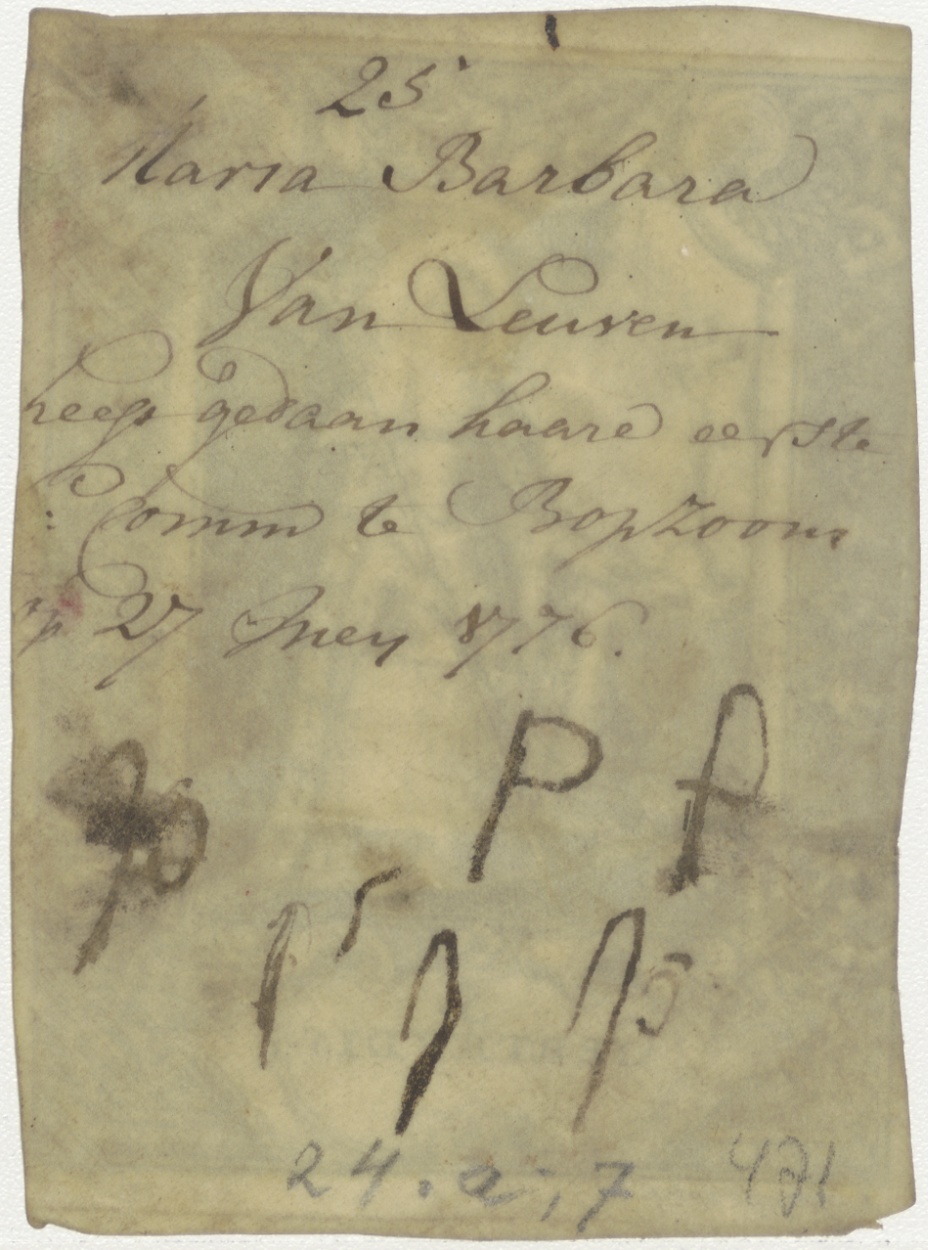 25
Maria Barbara
Van Leuven
heeft gedaan haare eerste
Comm te Bopzoom
op 27 Mey 1776.
P P
24.a;7 421